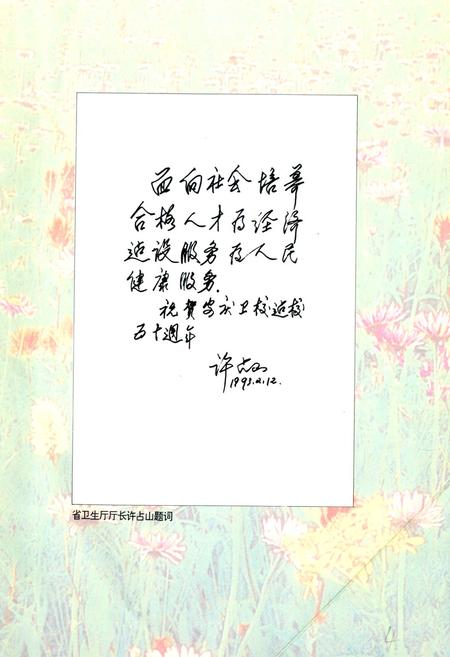 面向社会培养
合格人才为经济
建设服务为人民
健康服务.
祝贺安庆卫校建校
五十週年
许占山
1993.2.12.
省卫生厅厅长许占山题词